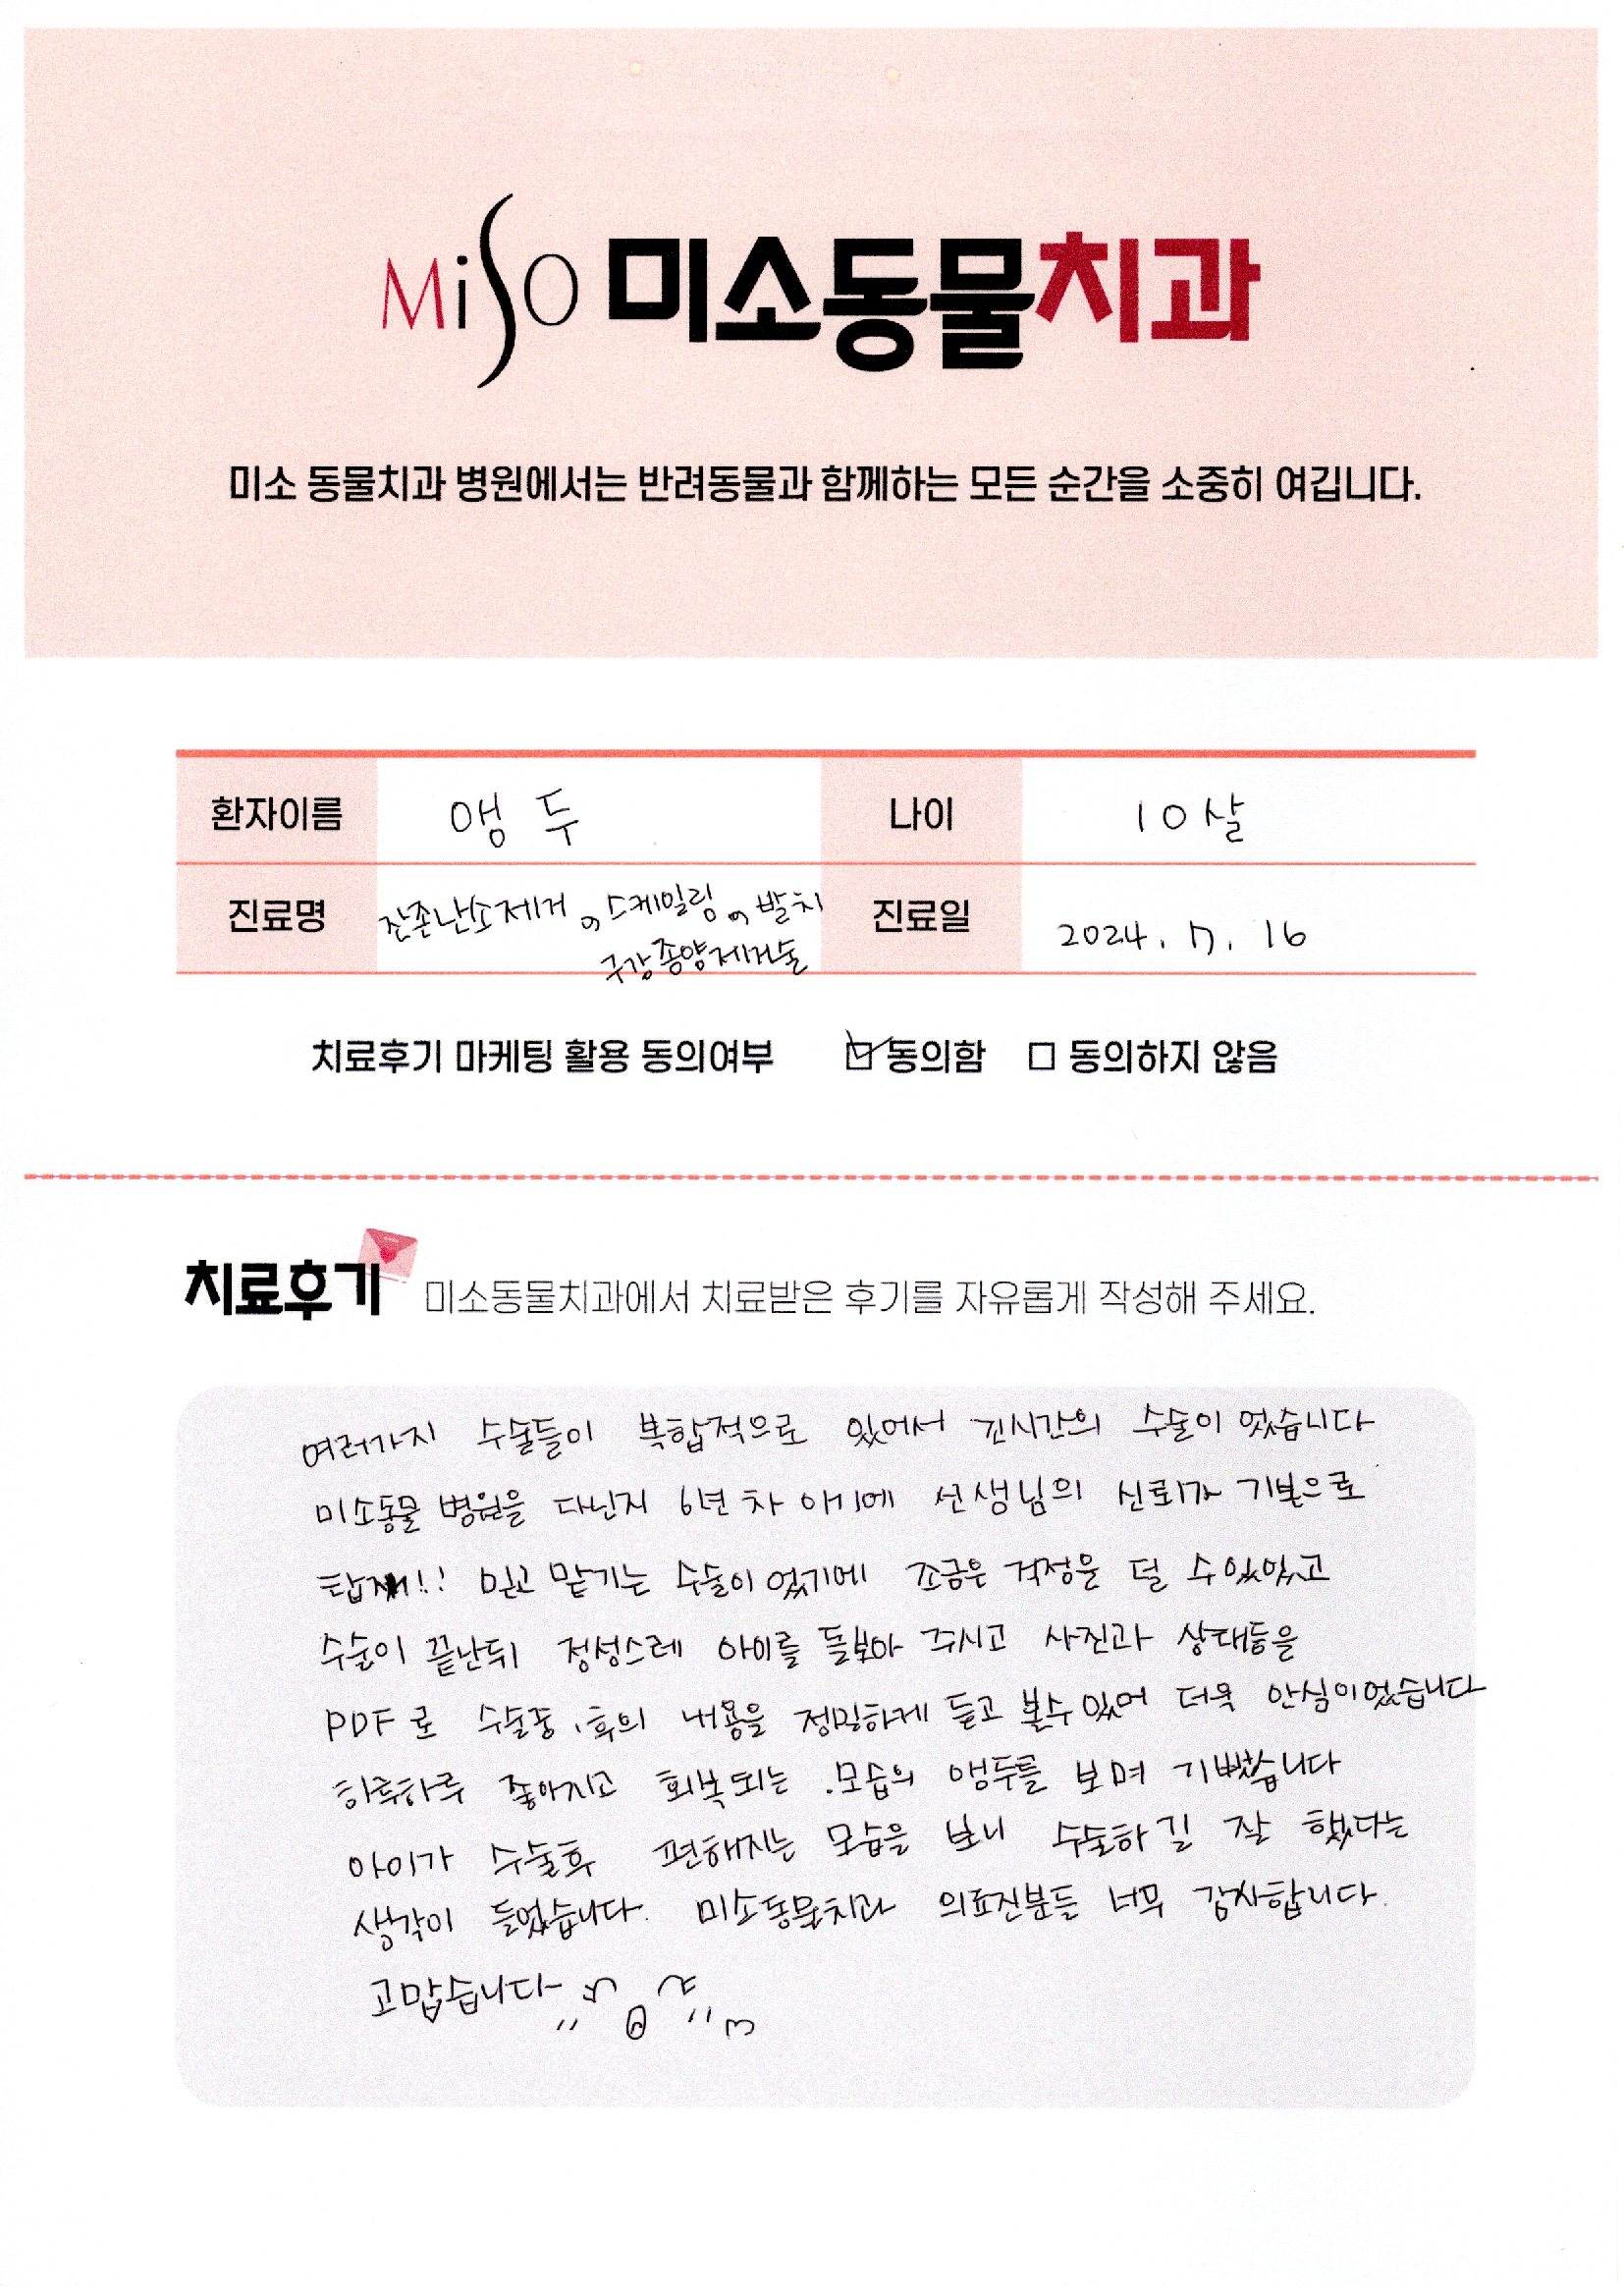 MiSO 미소동물치과
미소 동물치과 병원에서는 반려동물과 함께하는 모든 순간을 소중히 여깁니다.
환자이름 앵두 나이 10살
진료명 잔존난소제거, 스케일링, 발치 진료일 2024. 7. 16
구강종양제거술
치료후기 마케팅 활용 동의여부 ☑ 동의함 □ 동의하지 않음
치료후기 미소동물치과에서 치료받은 후기를 자유롭게 작성해 주세요.
여러가지 수술들이 복합적으로 있어서 긴시간의 수술이 었습니다
미소동물 병원을 다닌지 6년 차 이기에 선생님의 신뢰가 기본으로
탑재!! 믿고 맡기는 수술이 었기에 조금은 걱정을 덜 수있었고
수술이 끝난뒤 정성스레 아이를 돌보아 주시고 사진과 상태등을
PDF로 수술중,후의 내용을 정밀하게 듣고 볼수 있어 더욱 안심이었습니다
하루하루 좋아지고 회복되는 모습의 앵두를 보며 기뻤습니다
아이가 수술후 편해지는 모습을 보니 수술하길 잘 했다는
생각이 들었습니다. 미소동물치과 의료진분들 너무 감사합니다.
고맙습니다~